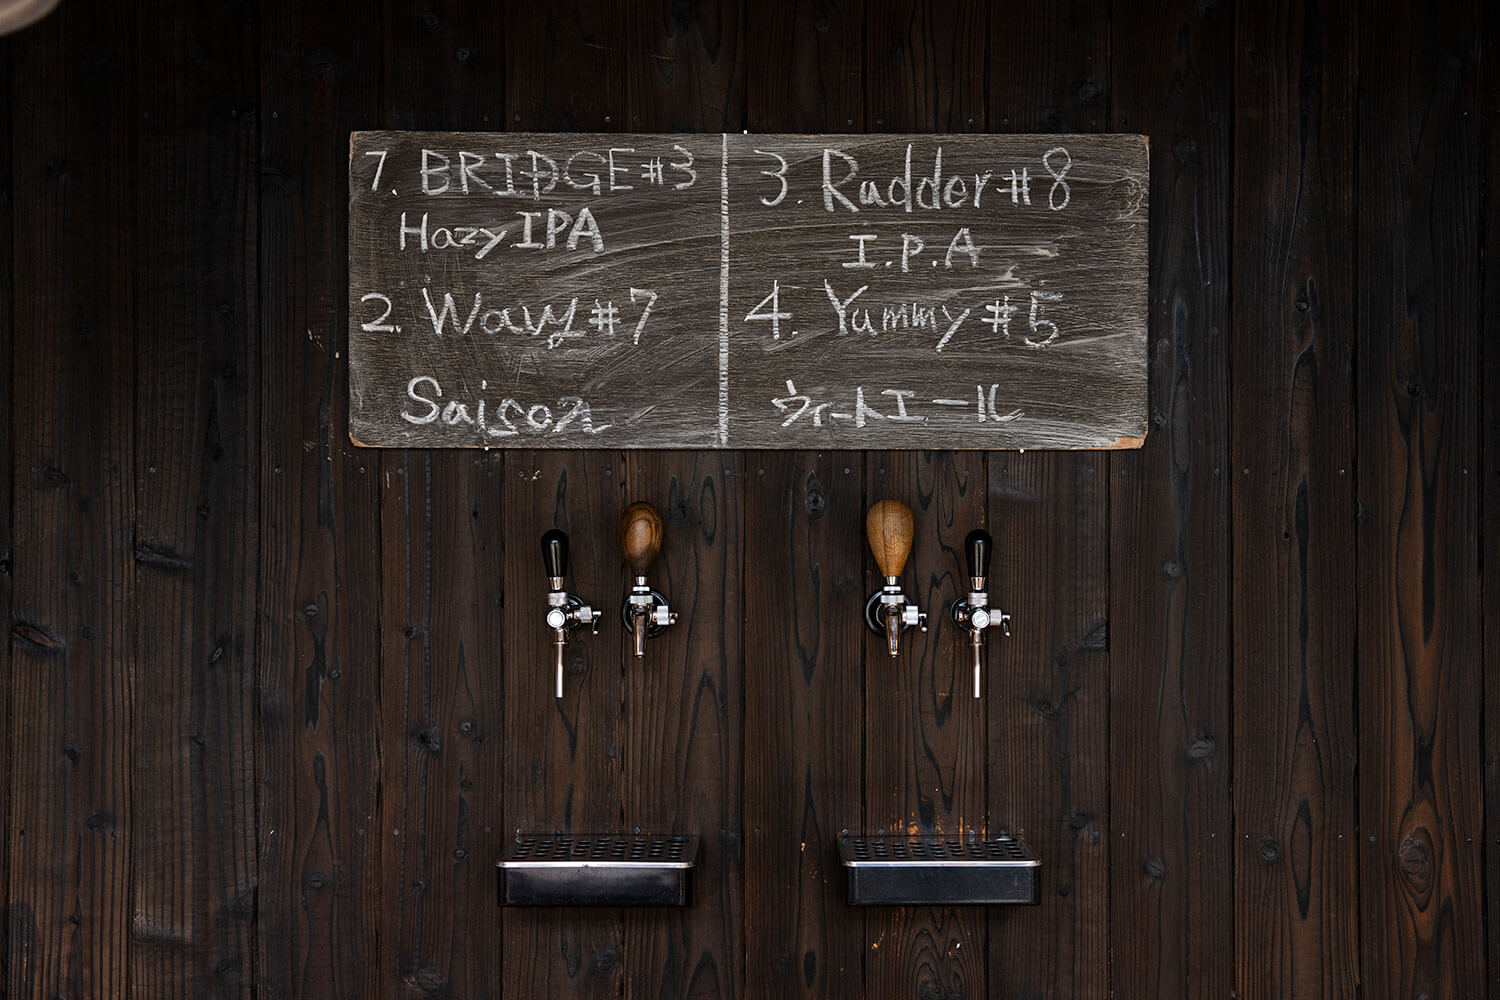 1. BRIDGE #3
Hazy IPA
2. Wavy #7
Saison
3. Rudder #8
I.P.A
4. Yummy #5
ウィートエール